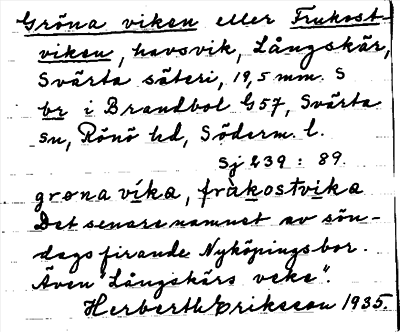 Gröna viken eller Frukost-
viken, havsvik, Långskär,
Svärta säteri, 19,5 mm. S
br i Brandbol G57, Svärta
sn, Rönö hd, Söderm. l.
Sj 239 : 89.
grøna vika, fràkostvika
Det senare namnet av sön-
dagsfirande Nyköpingsbor.
Även "Långskärs veke".
Herberth Eriksson 1935.